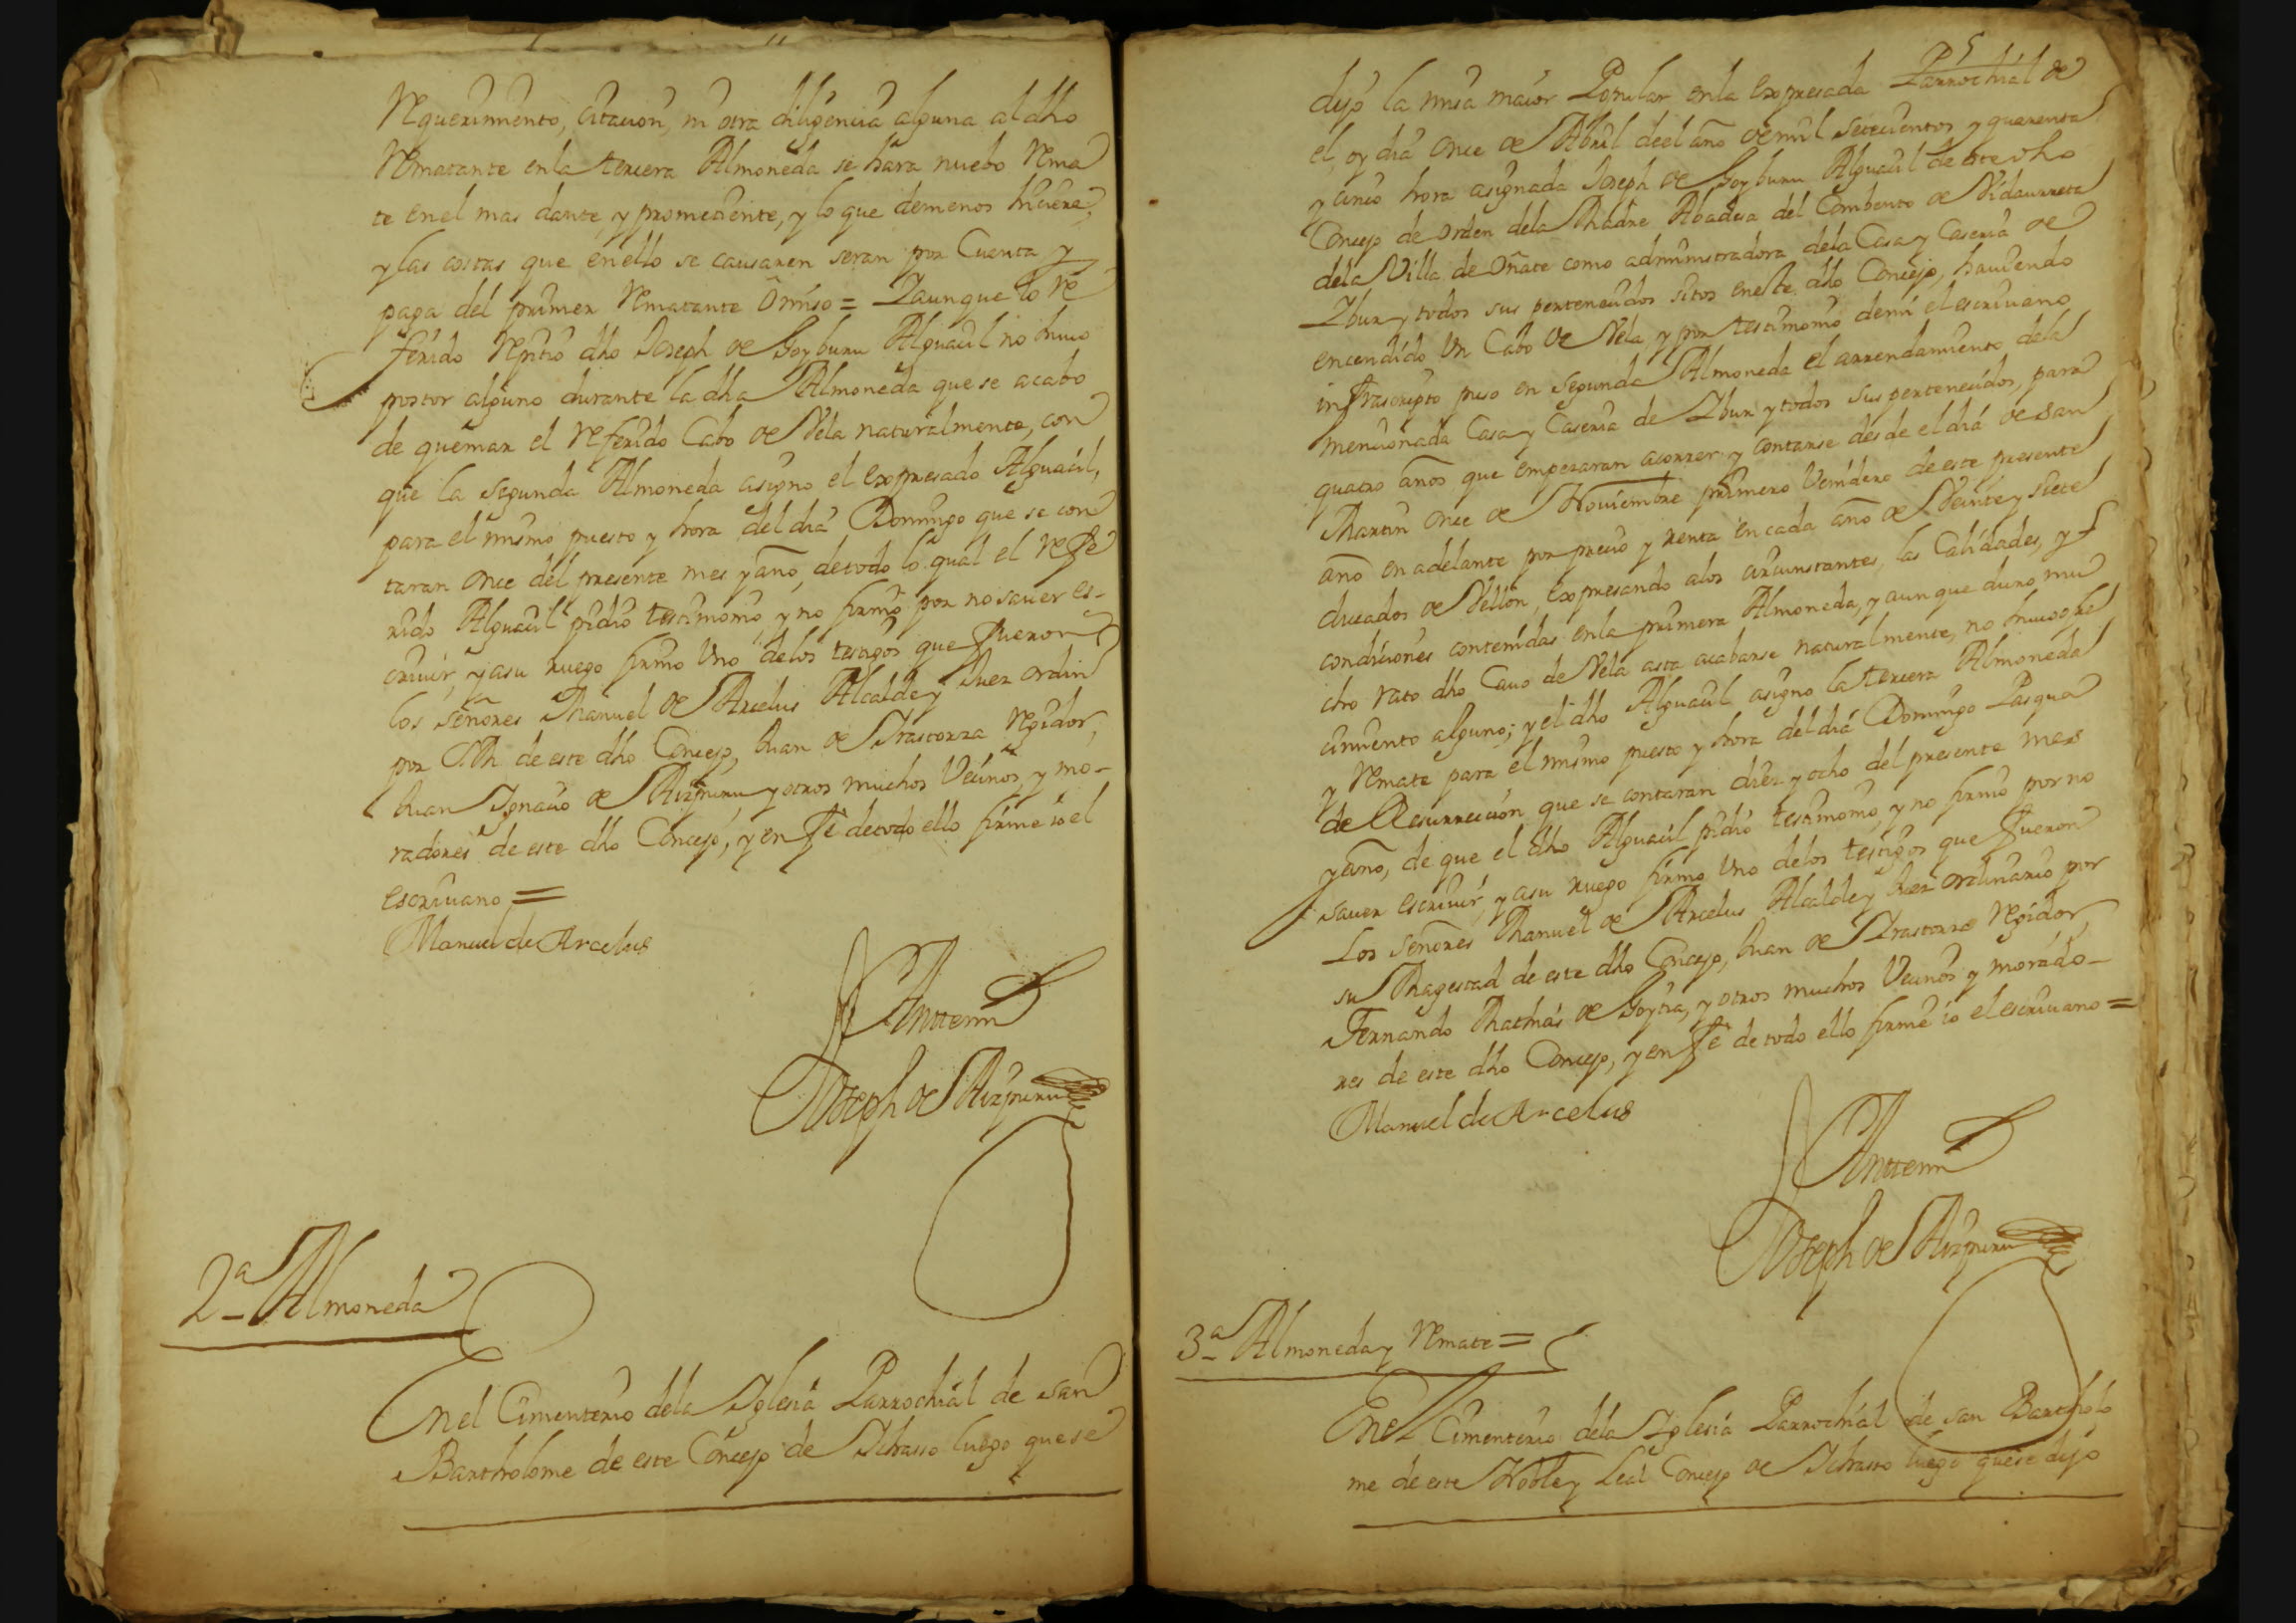 Requerimiento, Citacion, ni otra diligencia alguna al dho
Rematante enla tercera Almoneda se hara nuebo Rema
te enel mas dante, y prometiente, y lo que demenos hiciere,
y las costas que enello se causaren seran por Cuenta y
paga del primer Rematante Omiso = Y aunque lo Re
ferido Repitio dho Joseph de Goyburu Alguacil no huuo
postor alguno durante la dha Almoneda que se acabo
de quemar el Referido Cabo de Vela naturalmente, con
que la segunda Almoneda asigno el expresado Alguacil,
para el mismo puesto y hora del dia Domingo que se con
taran Once del presente mes y año, detodo lo qual el Refe
rido Alguacil pidio testimonio, y no firmo por no sauer es-
criuir, y asu ruego firmo Uno delos testigos que fueron
los señores Manuel de Arcelus Alcalde y Juez ordin
por SM de este dho Concejo, Juan de Yrastorza Regidor,
Juan Ygnacio de Aizpuru y otros muchos Vecinos, y mo-
radores de este dho Concejo, y en fe detodo ello firme io el
escriuano =
Manuel de Arcelus
Antemi
Joseph de Aizpuru
2ª Almoneda
Enel Cimenterio dela Yglesia Parrochial de San
Bartholome de este Concejo de Ychasso luego que se
5
dijo la misa maior Popular enla expresada Parrochial de
el, oy dia Once de Abril deel año de mil setecientos y quarenta
y cinco hora asignada Joseph de Goyburu Alguacil de este dho
Concejo de orden dela Madre Abadesa del Combento de Vidaurreta
dela Villa de Oñate como administradora dela Casa y Caseria de
Ybur y todos sus pertenecidos sitos eneste dho Concejo, hauiendo
encendido Un Cabo de Vela y por testimonio demi el escriuano
infrascripto puso en segunda Almoneda el arrendamiento dela
mencionada Casa y Caseria de Ybur y todos sus pertenecidos, para
quatro años que empezaran acorrer y contarse desde el dia de San
Martin Once de Nouiembre primero Venidero de este presente
año en adelante por precio y renta en cada año de Veinte y siete
ducados de Vellon, expresando alos circunstantes, las Calidades, y
condiciones contenidas enla primera Almoneda, y aunque duro mu
cho rato dho Cauo de Vela asta acabarse naturalmente, no huuo ofre
cimiento alguno; y el dho Alguacil asigno la tercera Almoneda
y Remate para el mismo puesto y hora del dia Domingo Pasqua
de Resurreccion que se contaran diez y ocho del presente mes
y año, de que el dho Alguacil pidio testimonio, y no firmo por no
sauer escriuir, y asu ruego firmo Uno delos testigos que fueron
Los señores Manuel de Arcelus Alcalde y Juez ordinario por
su Magestad de este dho Concejo, Juan de Yrastorza Regidor,
Fernando Mathias de Goytia, y otros muchos Vecinos y morado-
res de este dho Concejo, y en fe de todo ello firme io el escriuano =
Manuel de Arcelus
Antemi
Joseph de Aizpuru
3ª Almoneda y Remate =
Enel Cimenterio dela Yglesia Parrochial de San Bartholo
me de este Noble y Leal Concejo de Ychasso luego que se dijo